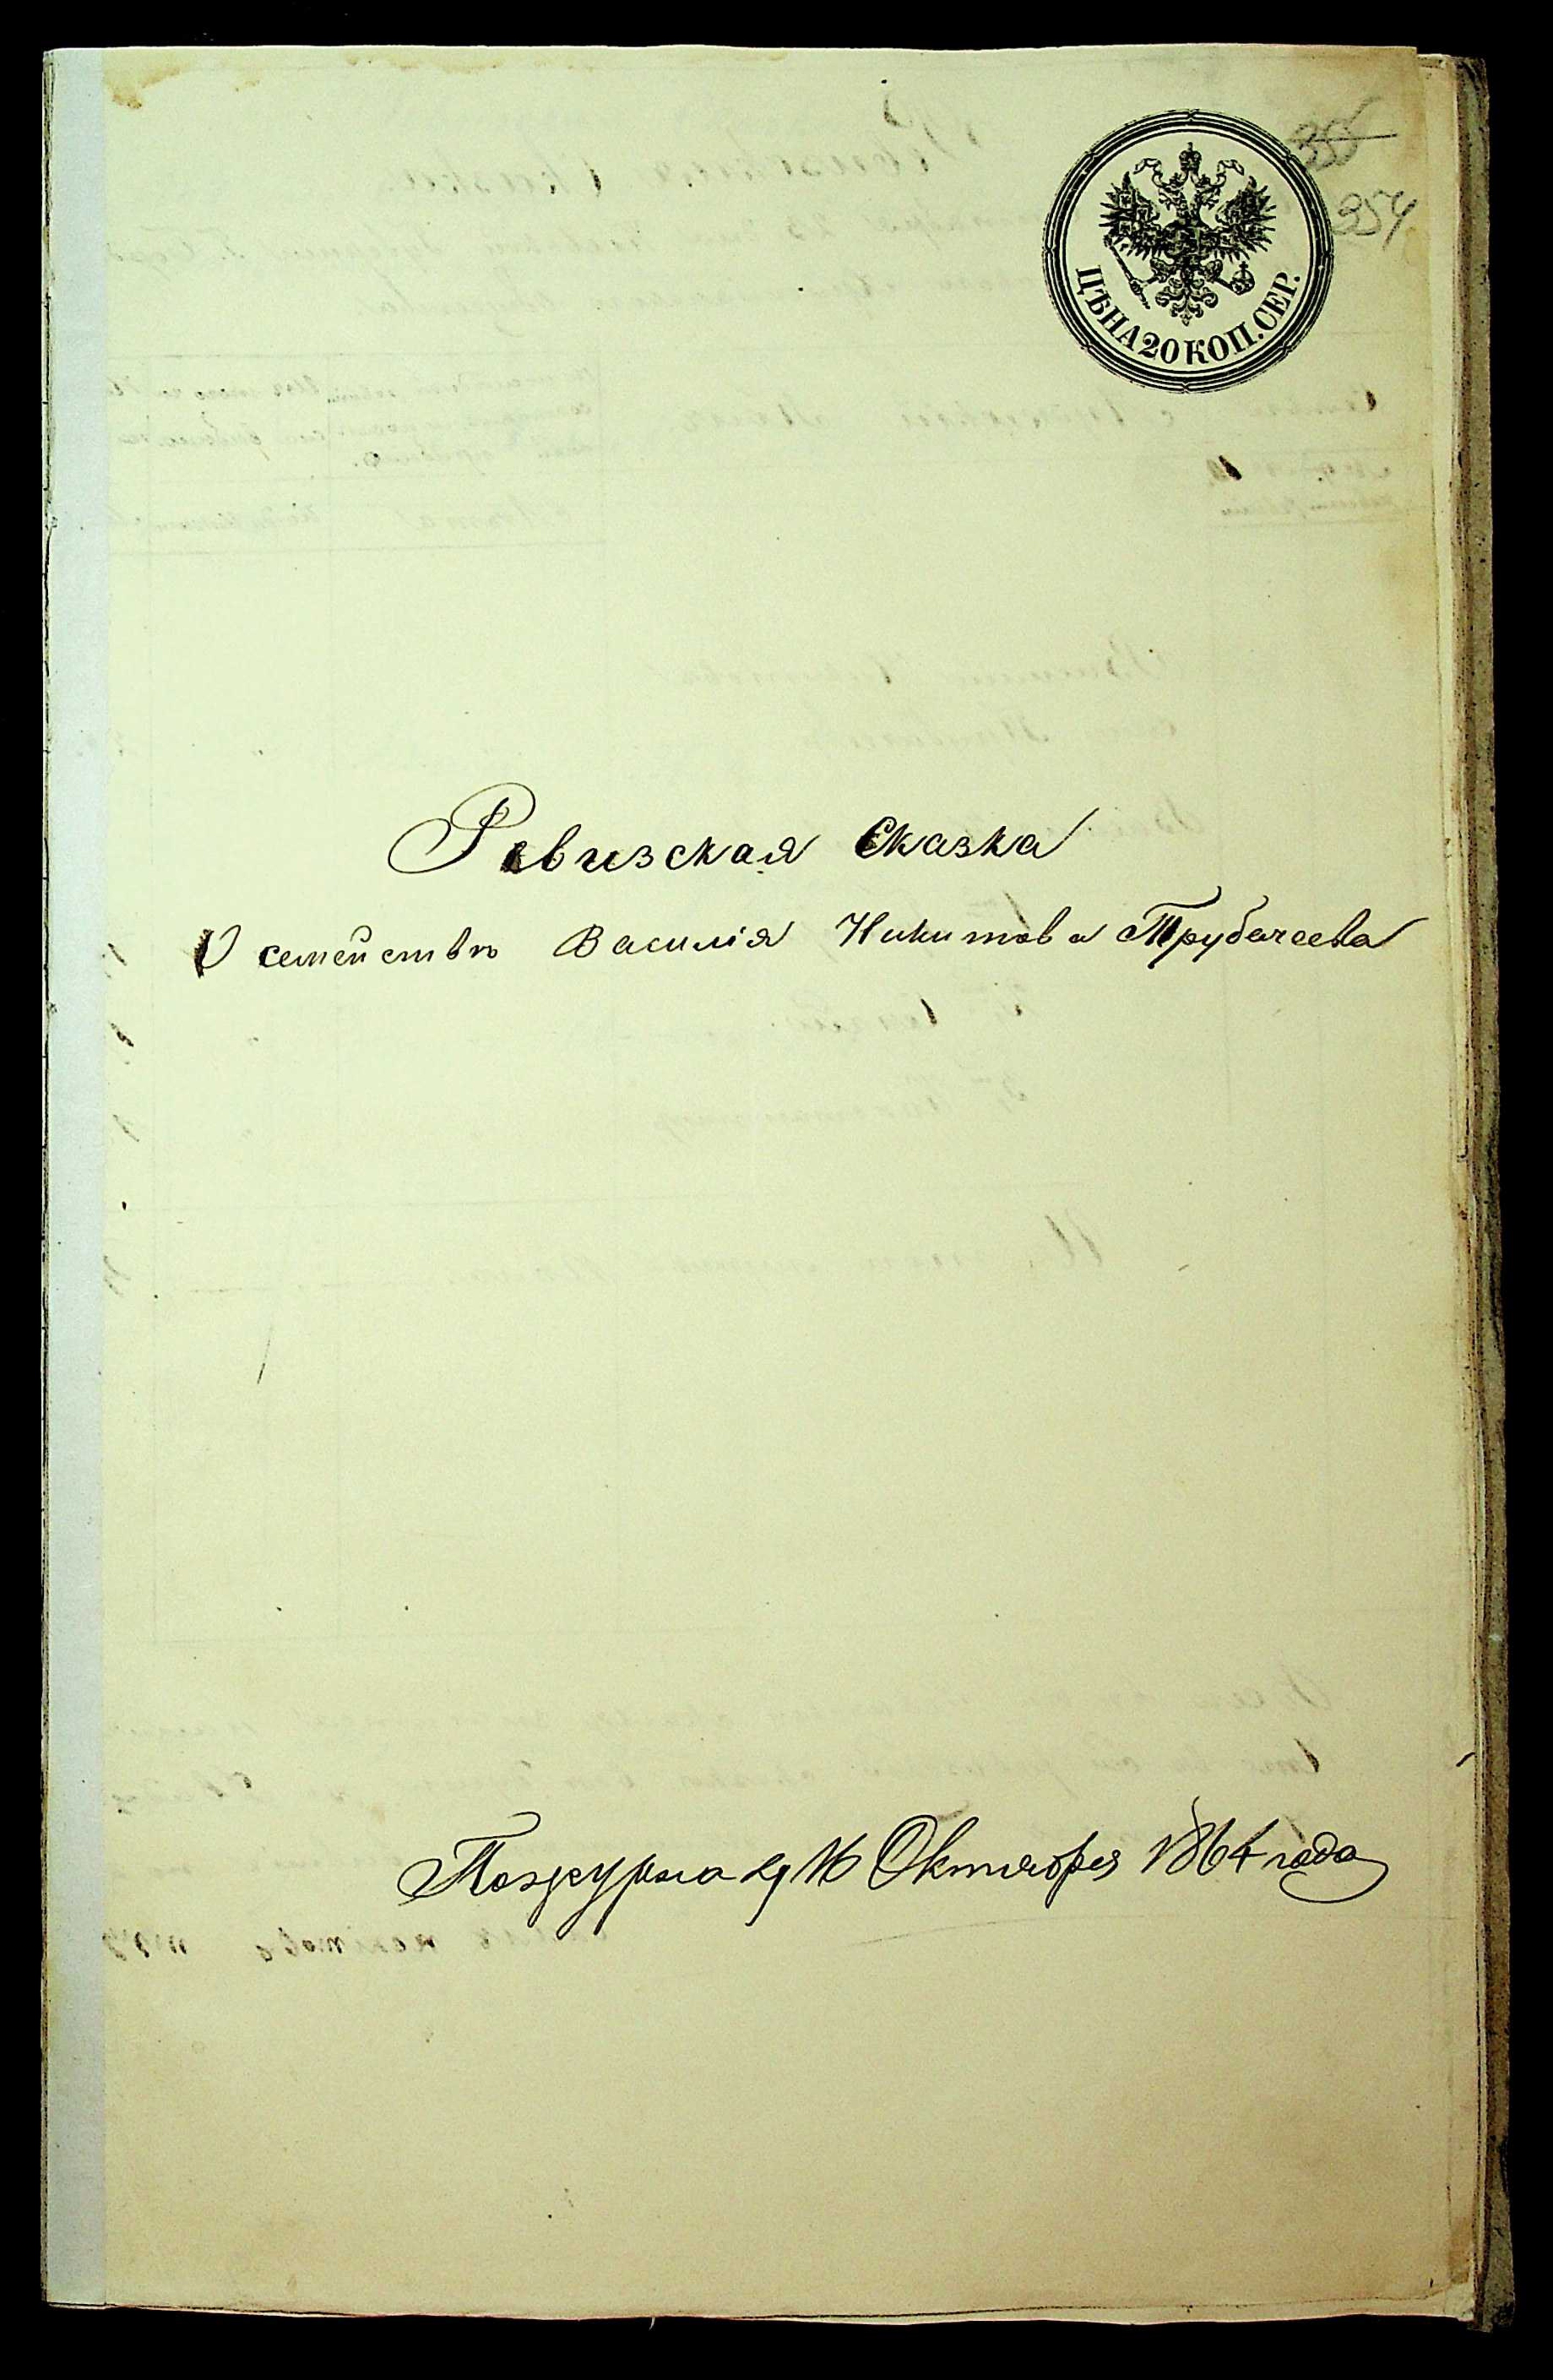 355
354
ЦѢНА 20 КОП. СЕР.
Ревизская Сказка
О семействѣ Василія Никитова Трубачеева
По журналу 16 Октября 1864 года